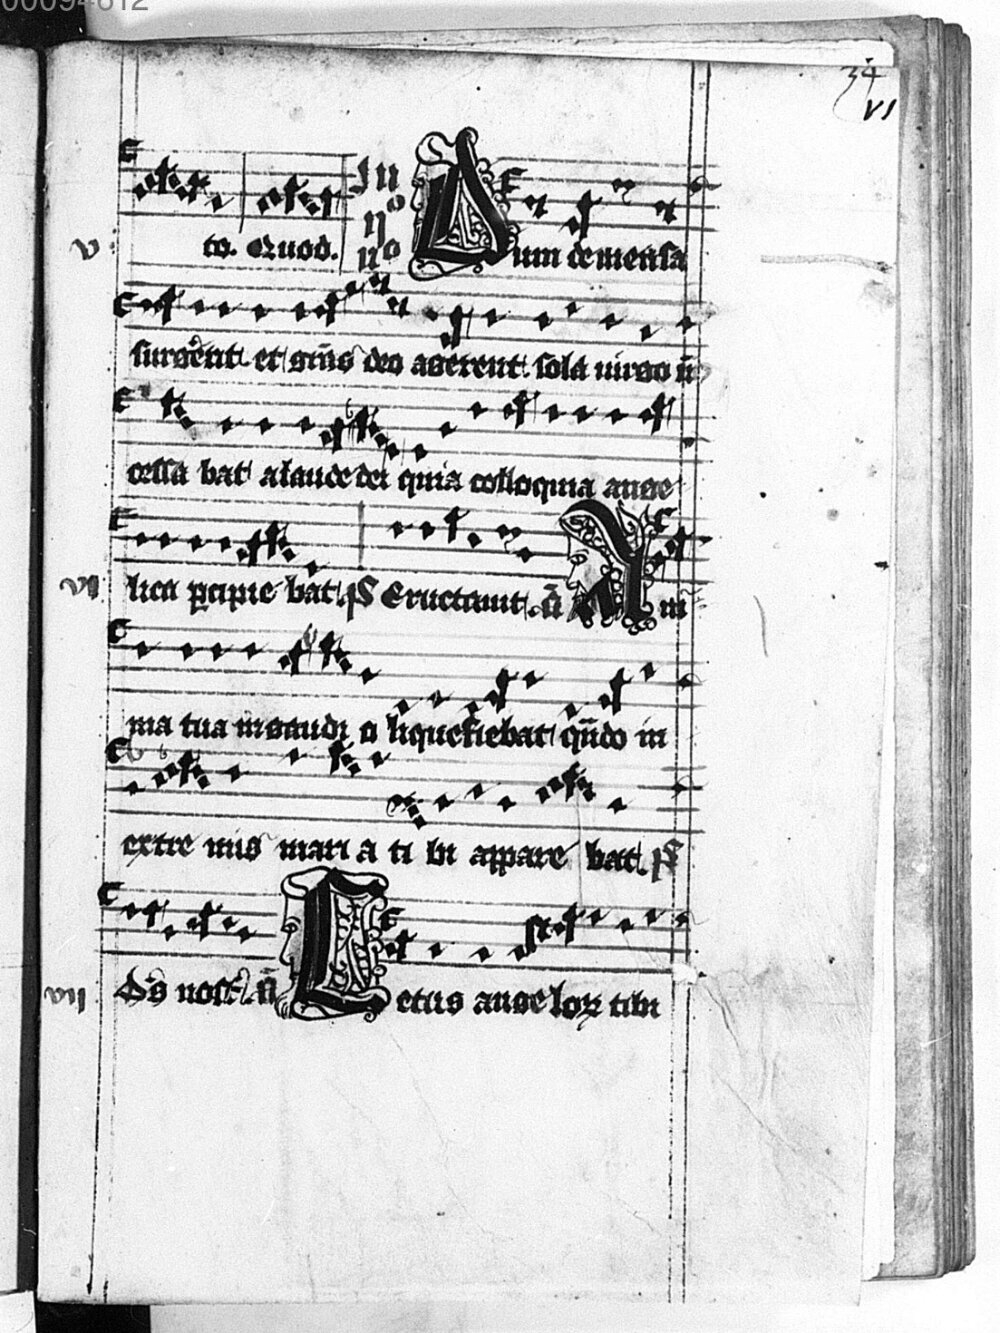 00094612
34
VI
In
v to. Quod. ijº Dum de mensa
nº
surgerēt et grās deo agerent sola uirgo ñ
cessa bat a laude dei quia colloquia ange
vi lica ꝑcipie bat. ps Eructauit. añ Ani
ma tua in gaudi o liquefiebat qn̄do in
extre mis mari a ti bi appare bat. ps
vii Ds nost. añ Letus angeloꝝ tibi